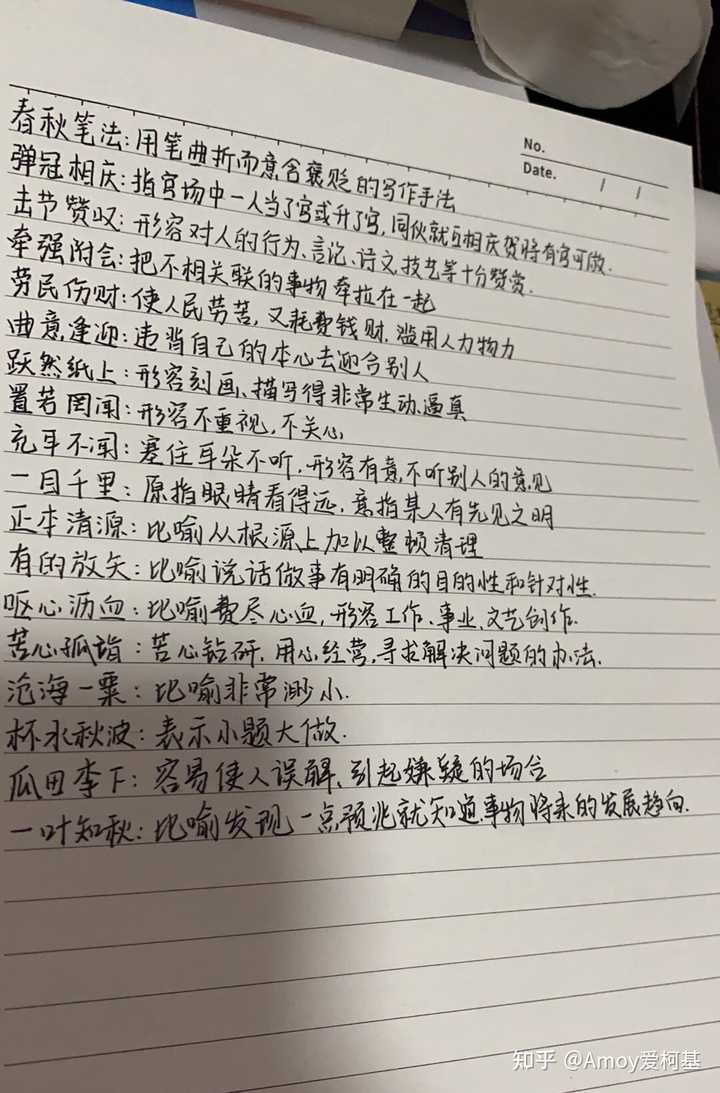 No.
Date. / /
春秋笔法:用笔曲折而意含褒贬的写作手法
弹冠相庆:指官场中一人当了官或升了官,同伙就互相庆贺将有官可做.
击节赞叹:形容对人的行为、言论、诗文,技艺等十分赞赏.
牵强附会:把不相关联的事物牵拉在一起
劳民伤财:使人民劳苦,又耗费钱财.滥用人力物力
曲意逢迎:违背自己的本心去迎合别人
跃然纸上:形容刻画、描写得非常生动、逼真
置若罔闻:形容不重视,不关心
充耳不闻:塞住耳朵不听.形容有意不听别人的意见
一目千里:原指眼睛看得远.意指某人有先见之明
正本清源:比喻从根源上加以整顿清理
有的放矢:比喻说话做事有明确的目的性和针对性.
呕心沥血:比喻费尽心血,形容工作、事业、文艺创作.
苦心孤诣:苦心钻研.用心经营,寻求解决问题的办法.
沧海一粟:比喻非常渺小.
杯水秋波:表示小题大做.
瓜田李下:容易使人误解、引起嫌疑的场合
一叶知秋:比喻发现一点预兆就知道事物将来的发展趋向.
知乎 @Amoy爱柯基